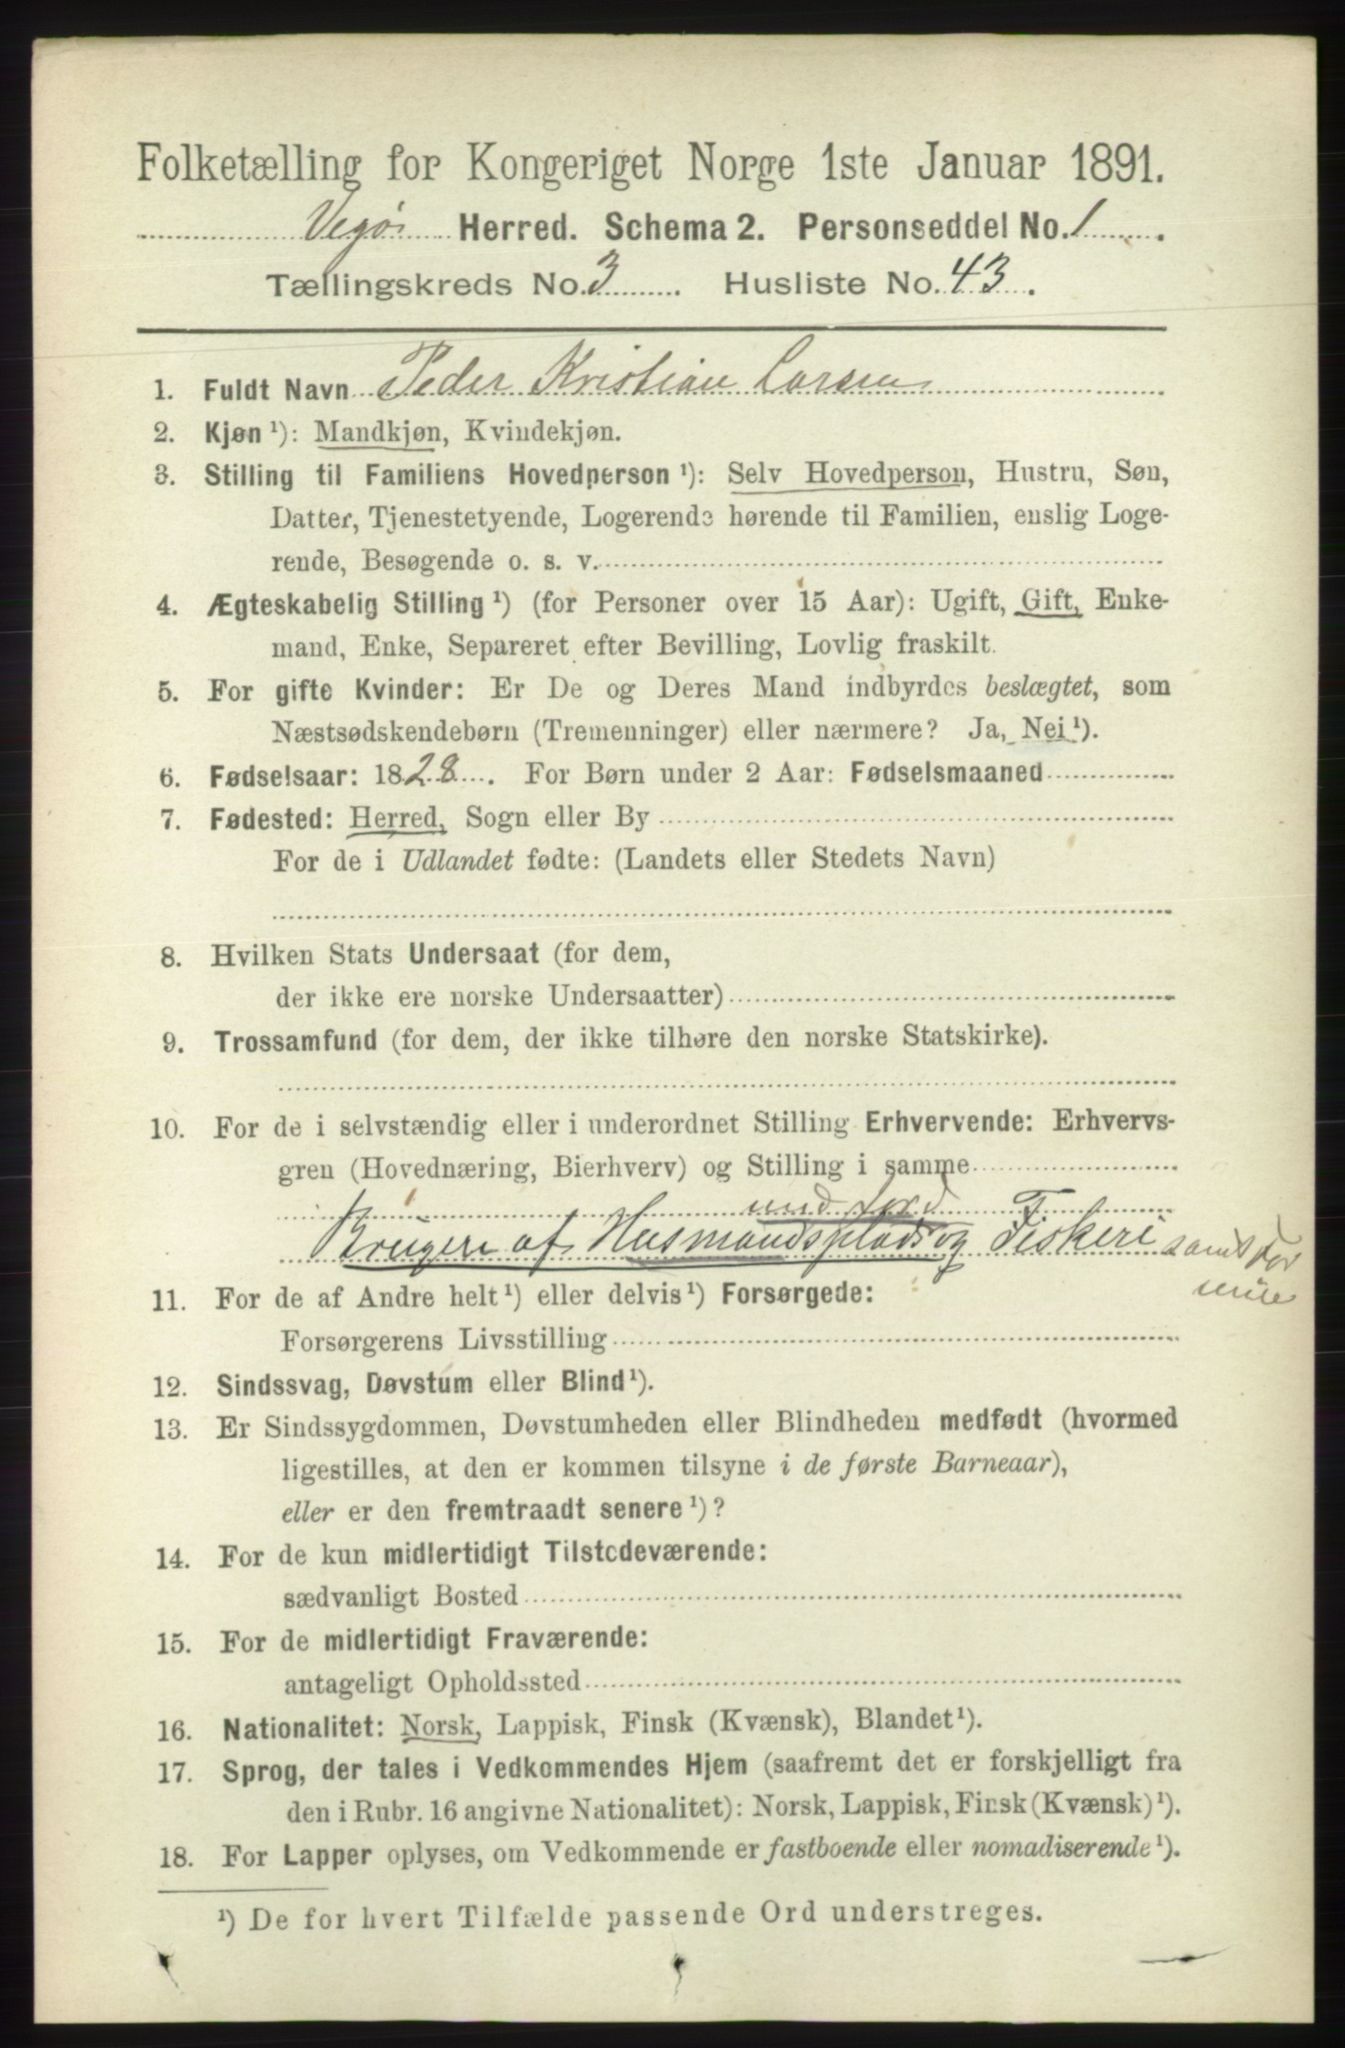 Folketælling for Kongeriget Norge 1ste Januar 1891.
Vegø Herred. Schema 2. Personseddel No. 1.
Tællingskreds No. 3. Husliste No. 43.
1. Fuldt Navn Peder Kristian Larsen
2. Kjøn ¹): Mandkjøn, Kvindekjøn.
3. Stilling til Familiens Hovedperson ¹): Selv Hovedperson, Hustru, Søn,
Datter, Tjenestetyende, Logerende hørende til Familien, enslig Loge-
rende, Besøgende o. s. v.
4. Ægteskabelig Stilling ¹) (for Personer over 15 Aar): Ugift, Gift, Enke-
mand, Enke, Separeret efter Bevilling, Lovlig fraskilt.
5. For gifte Kvinder: Er De og Deres Mand indbyrdes beslægtet, som
Næstsødskendebørn (Tremenninger) eller nærmere? Ja, Nei ¹).
6. Fødselsaar: 1828. For Børn under 2 Aar: Fødselsmaaned
7. Fødested: Herred, Sogn eller By
For de i Udlandet fødte: (Landets eller Stedets Navn)
8. Hvilken Stats Undersaat (for dem,
der ikke ere norske Undersaatter)
9. Trossamfund (for dem, der ikke tilhøre den norske Statskirke).
10. For de i selvstændig eller i underordnet Stilling Erhvervende: Erhvervs-
gren (Hovednæring, Bierhverv) og Stilling i samme
med Jord
Brugere af Husmandsplads og Fiskeri samt
11. For de af Andre helt ¹) eller delvis ¹) Forsørgede:
Forsørgerens Livsstilling
12. Sindssvag, Døvstum eller Blind ¹).
13. Er Sindssygdommen, Døvstumheden eller Blindheden medfødt (hvormed
ligestilles, at den er kommen tilsyne i de første Barneaar),
eller er den fremtraadt senere ¹)?
14. For de kun midlertidigt Tilstedeværende:
sædvanligt Bosted
15. For de midlertidigt Fraværende:
antageligt Opholdssted
16. Nationalitet: Norsk, Lappisk, Finsk (Kvænsk), Blandet ¹).
17. Sprog, der tales i Vedkommendes Hjem (saafremt det er forskjelligt fra
den i Rubr. 16 angivne Nationalitet): Norsk, Lappisk, Finsk (Kvænsk) ¹).
18. For Lapper oplyses, om Vedkommende er fastboende eller nomadiserende ¹).
¹) De for hvert Tilfælde passende Ord understreges.